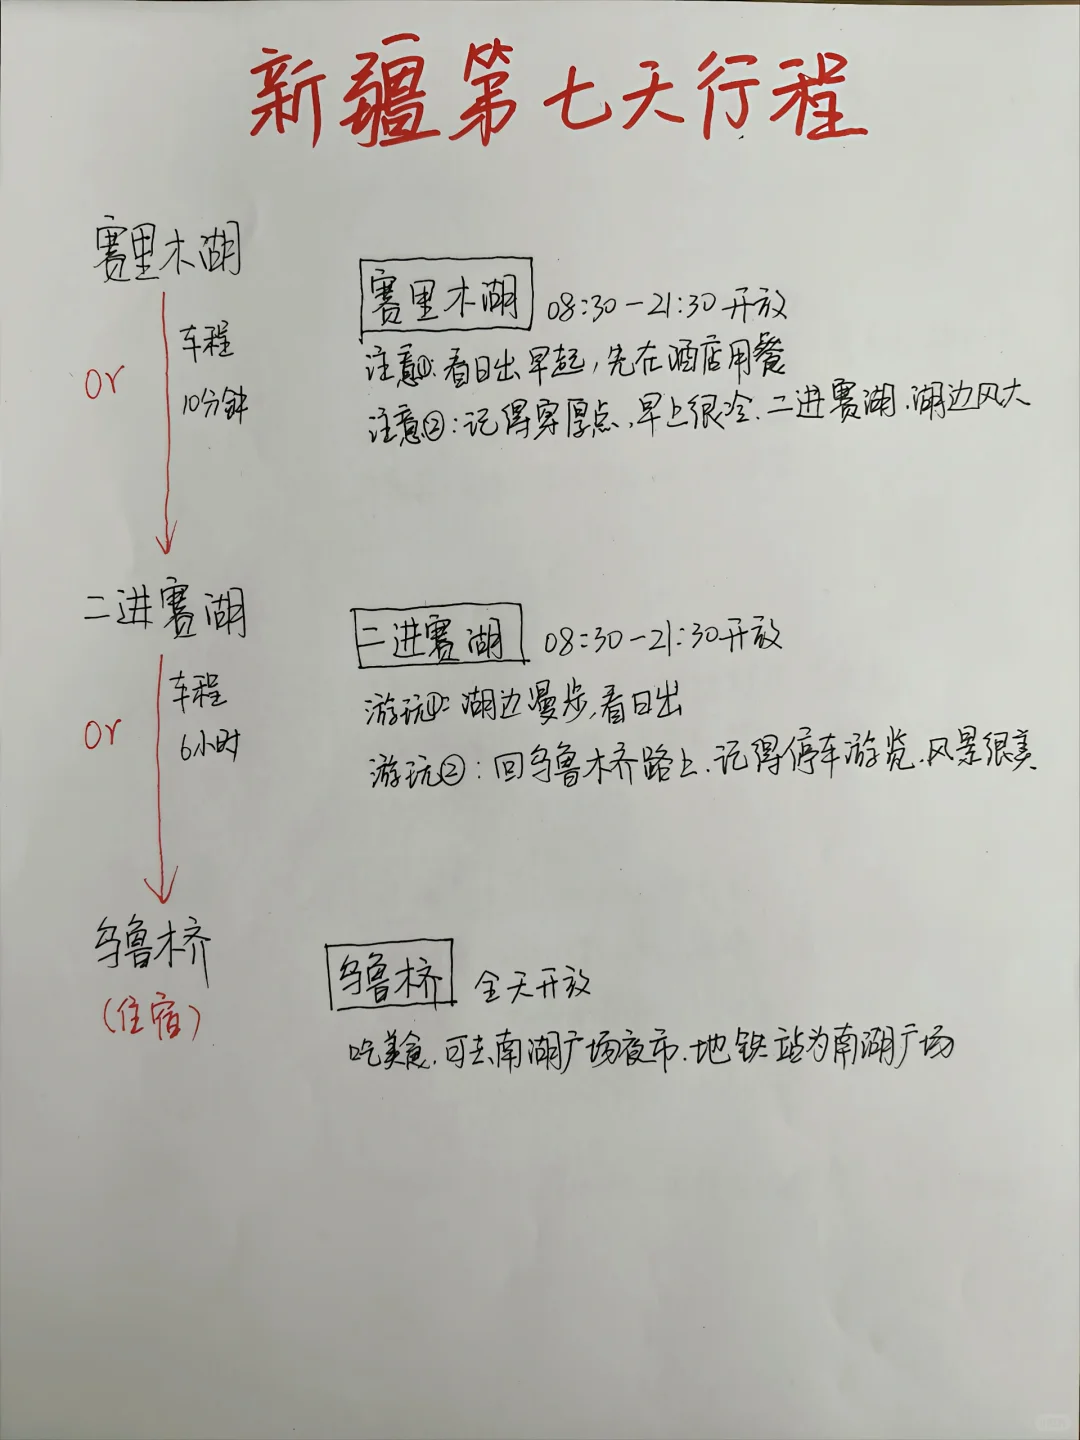 新疆第七天行程
赛里木湖
or
车程
10分钟
赛里木湖 08:30-21:30开放
注意①:看日出早起,先在酒店用餐
注意②:记得穿厚点,早上很冷.二进赛湖.湖边风大
二进赛湖
or
车程
6小时
二进赛湖 08:30-21:30开放
游玩①:湖边漫步,看日出
游玩②:回乌鲁木齐路上.记得停车游览.风景很美
乌鲁木齐
(住宿)
乌鲁木齐 全天开放
吃美食.可去南湖广场夜市.地铁站为南湖广场